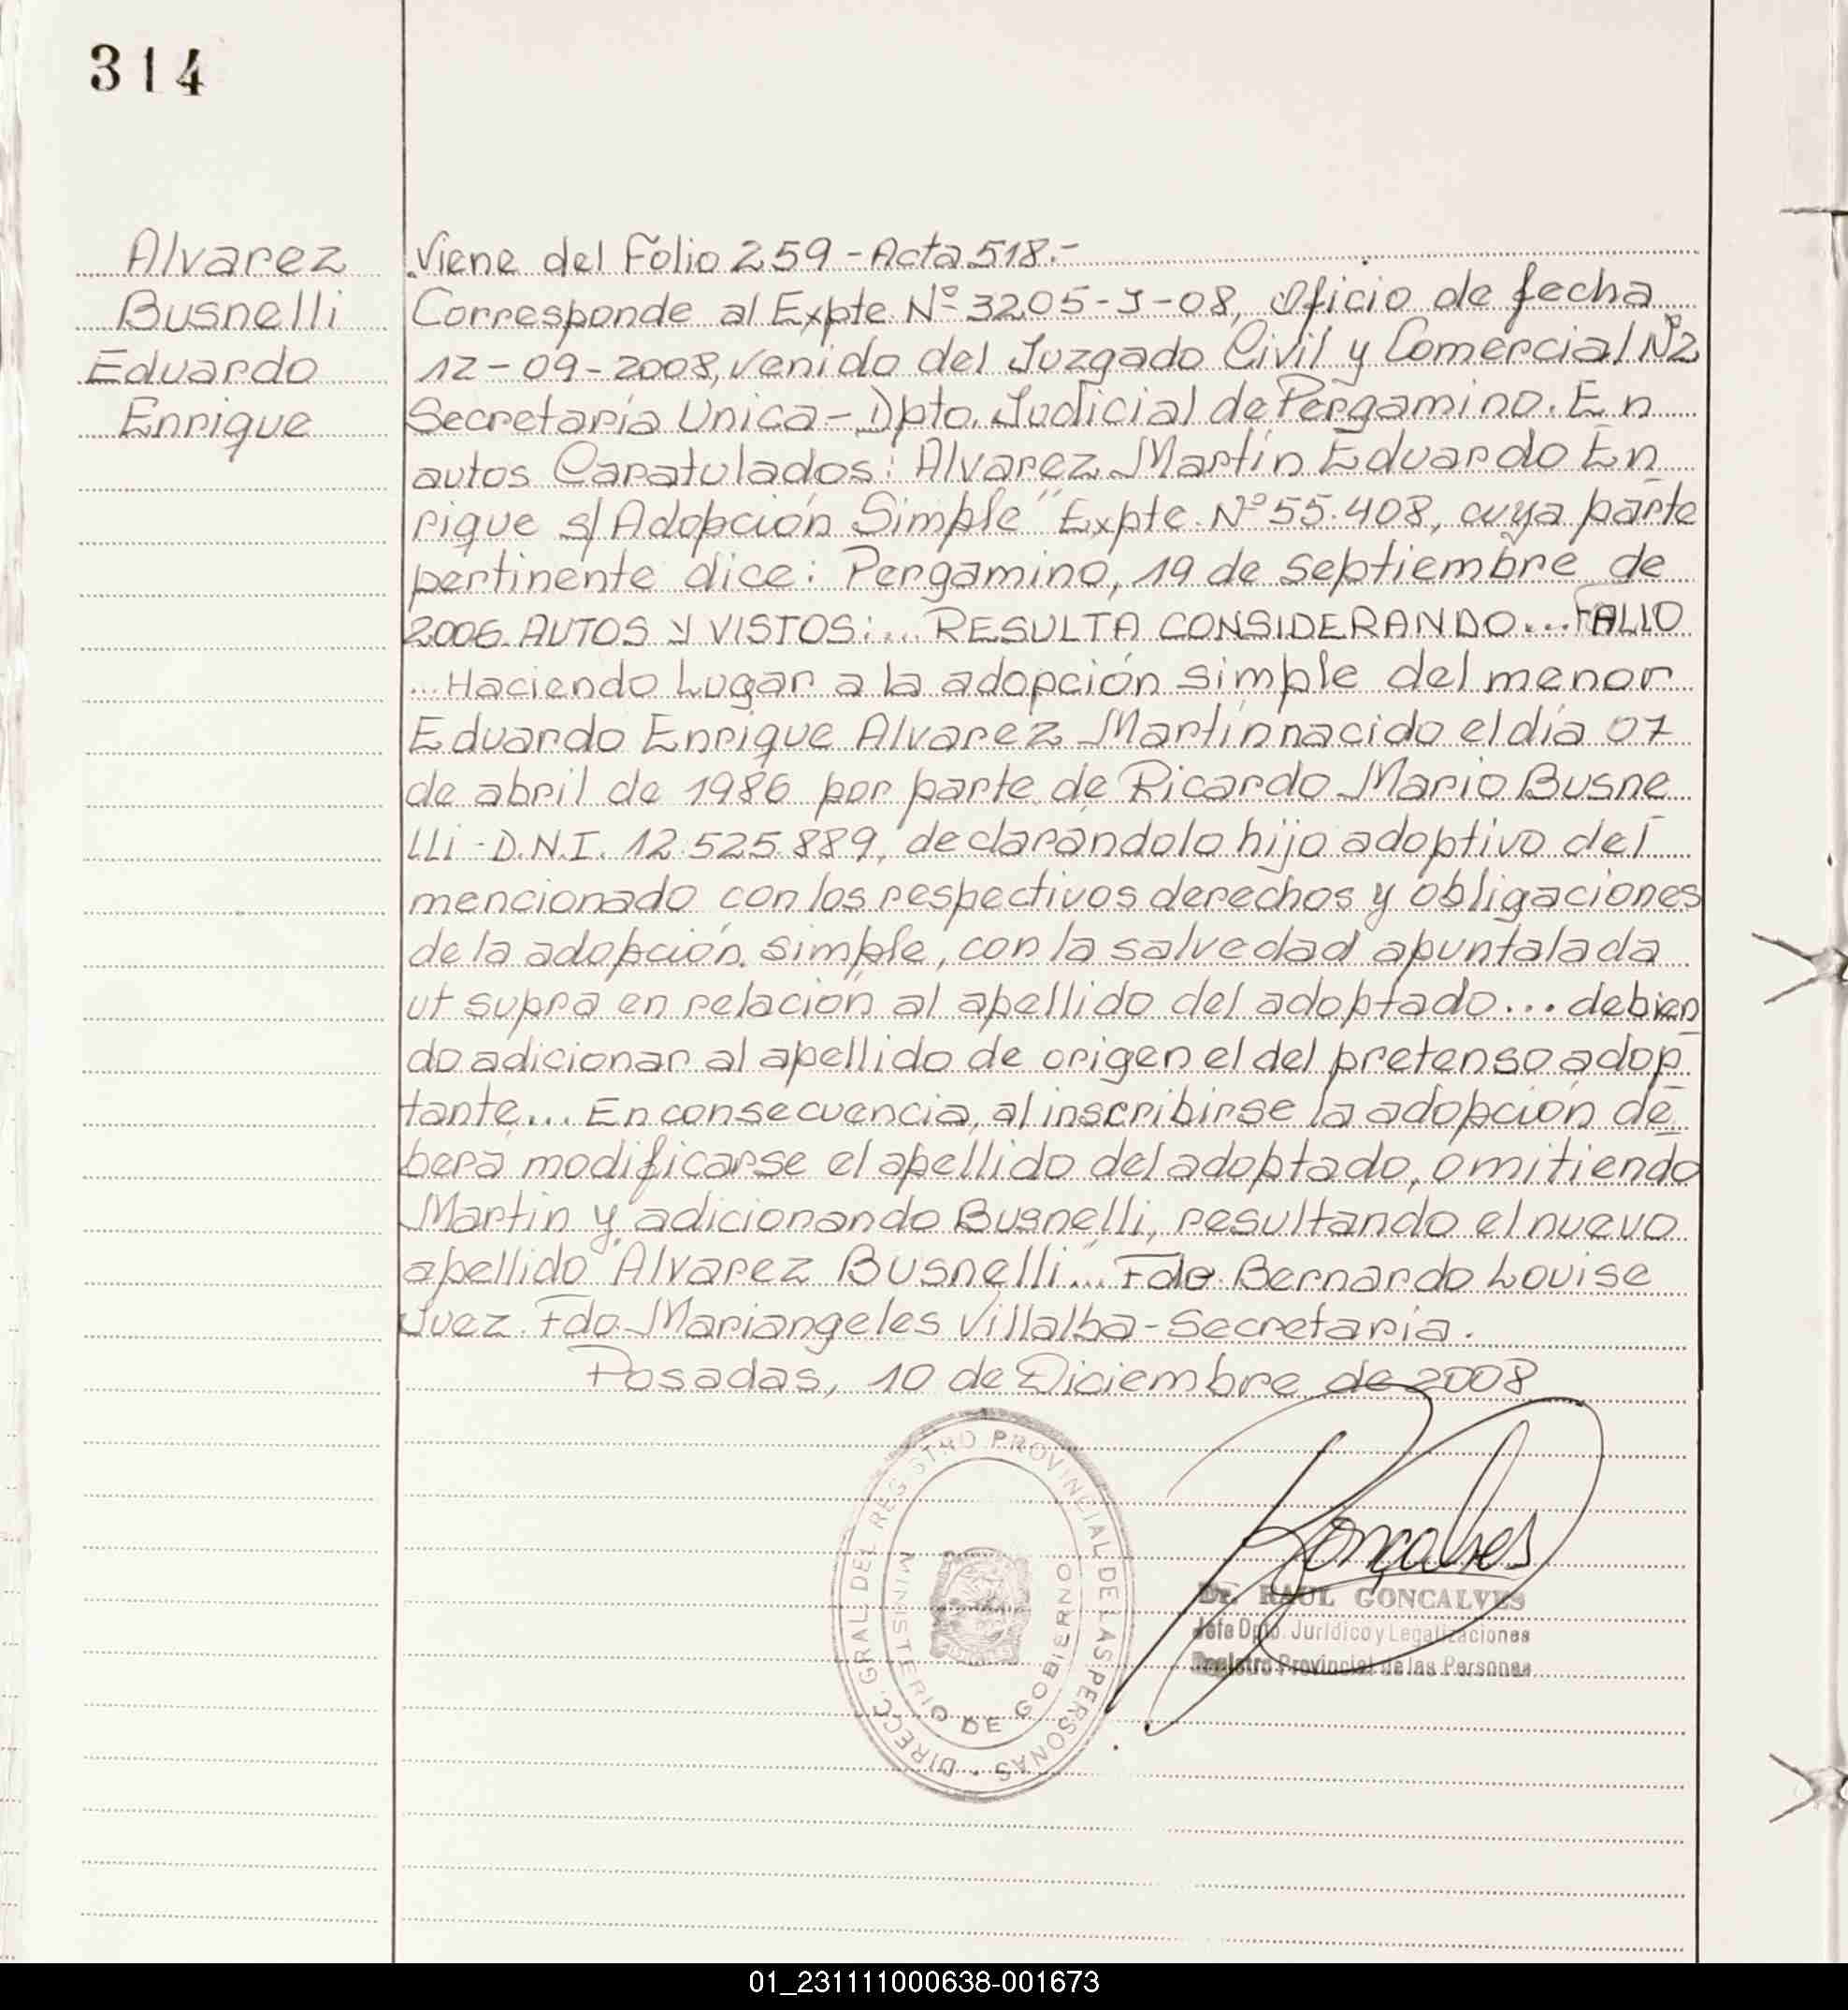 314
Alvarez
Busnelli
Eduardo
Enrique
Viene del Folio 259 - Acta 518.-
Corresponde al Expte Nº 3205-J-08, Oficio de fecha
12-09-2008, venido del Juzgado Civil y Comercial Nº2
Secretaría Unica - Dpto. Judicial de Pergamino. En
autos Caratulados: Alvarez Martín Eduardo En
rique s/ Adopción Simple" Expte. Nº 55.408, cuya parte
pertinente dice: Pergamino, 19 de septiembre de
2006. AUTOS Y VISTOS:... RESULTA CONSIDERANDO... FALLO
...Haciendo Lugar a la adopción simple del menor
Eduardo Enrique Alvarez Martín nacido el día 07
de abril de 1986 por parte de Ricardo Mario Busne
lli - D.N.I. 12.525.889, declarándolo hijo adoptivo del
mencionado con los respectivos derechos y obligaciones
de la adopción simple, con la salvedad apuntalada
ut supra en relación al apellido del adoptado... debien
do adicionar al apellido de origen el del pretenso adop
tante... En consecuencia, al inscribirse la adopción de
berá modificarse el apellido del adoptado, omitiendo
Martin y adicionando Busnelli, resultando el nuevo
apellido "Alvarez Busnelli"... Fdo. Bernardo Louise
Juez. Fdo. Mariangeles Villalba - Secretaria.
Posadas, 10 de Diciembre de 2008
DIRECC. GRAL. DEL REGISTRO PROVINCIAL DE LAS PERSONAS
MINISTERIO DE GOBIERNO
Gonçalves
Dr. RAUL GONCALVES
Jefe Dpto. Jurídico y Legalizaciones
Registro Provincial de las Personas
01_231111000638-001673